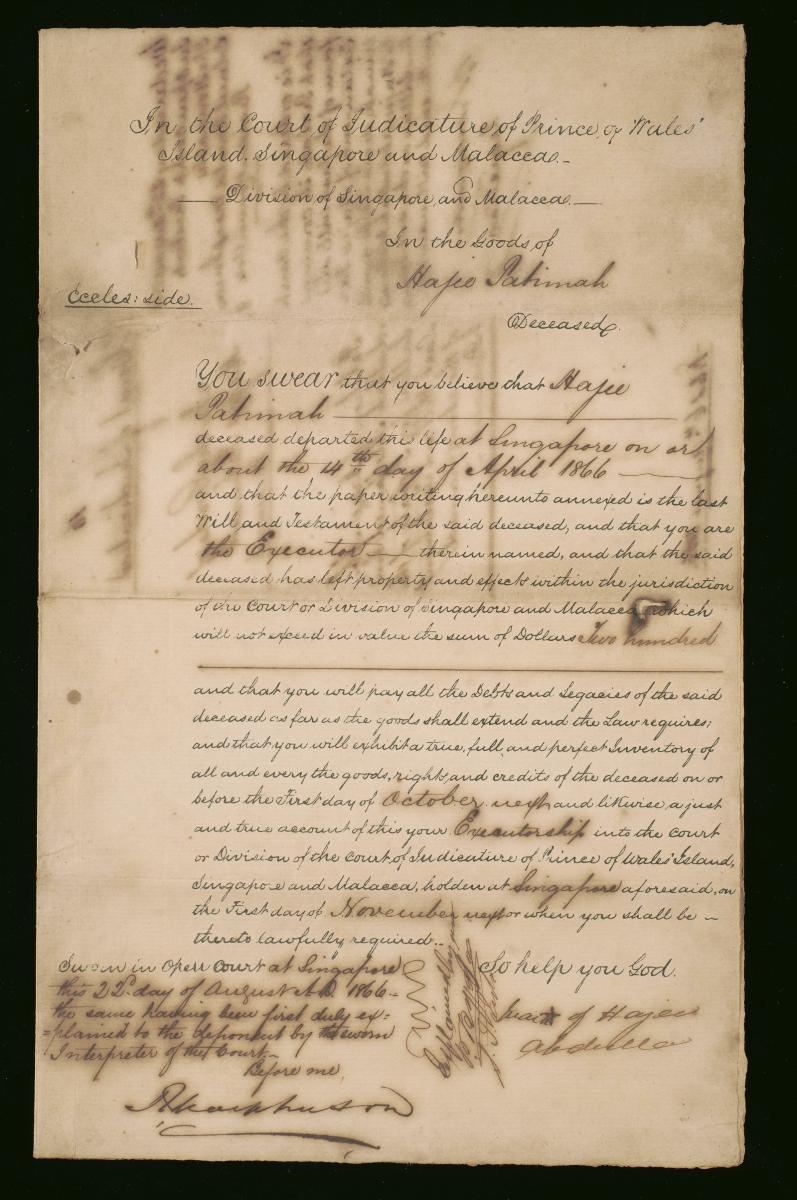 In the Court of Judicature of Prince of Wales'
Island, Singapore and Malacca.
Division of Singapore and Malacca.
In the Goods of
Hajee Patimah
Deceased.
Eccles: side.
You swear that you believe that Hajee
Patimah
deceased departed this life at Singapore on or
about the 14th day of April 1866
and that the paper writing hereunto annexed is the last
Will and Testament of the said deceased, and that you are
the Executor therein named, and that the said
deceased has left property and effects within the jurisdiction
of the Court or Division of Singapore and Malacca, which
will not exceed in value the sum of Dollars Two hundred
and that you will pay all the Debts and Legacies of the said
deceased as far as the goods shall extend and the Law requires;
and that you will exhibit a true, full, and perfect Inventory of
all and every the goods, rights, and credits of the deceased on or
before the First day of October next, and likwise, a just
and true account of this your Executorship into the Court
or Division of the Court of Judicature of Prince of Wales' Island,
Singapore and Malacca, holden at Singapore aforesaid, on
the First day of November next or when you shall be
thereto lawfully required.
So help you God.
Sworn in Open Court at Singapore
this 22d. day of August A.D. 1866
the same having been first duly ex=
=plained to the deponent by the sworn
Interpreter of the Court
Before me,
Explained by me
mark of Hajee
Abdulla